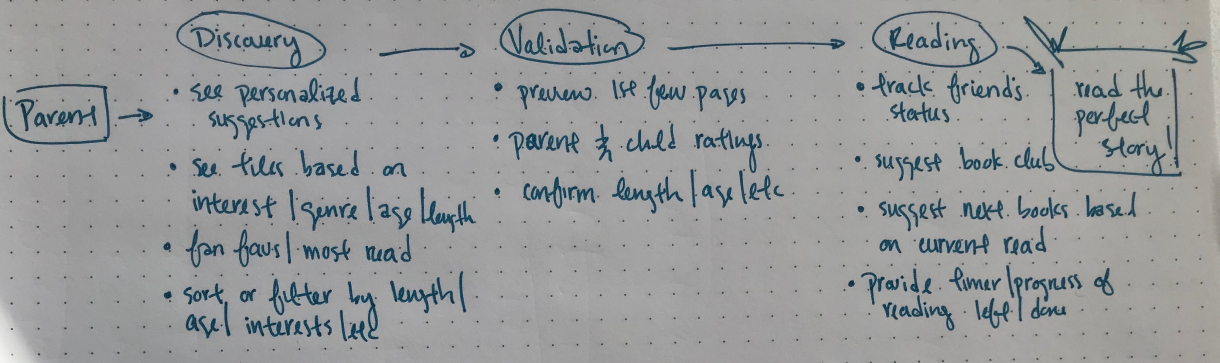 Parent
Discovery
• see personalized
suggestions
• see tiles based on
interest | genre | age | length
• fan favs | most read
• sort or filter by length |
age | interests | etc
Validation
• preview 1st few pages
• parent & child ratings
• confirm length | age | etc
Reading
• track friends
status
• suggest book club
• suggest next books based
on current read
• provide timer | progress of
reading left | done
read the
perfect
story!